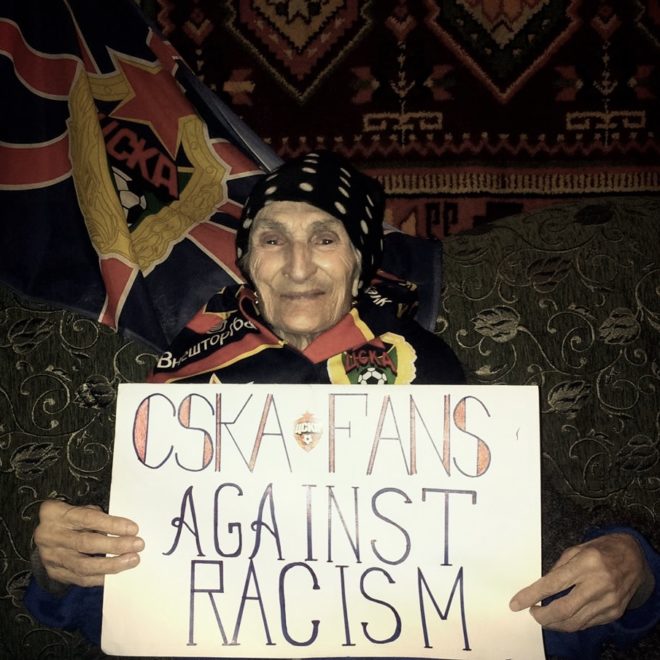 ЦСКА
Внешторгба
ЦСКА
CSKA ЦСКА FANS
AGAINST
RACISM